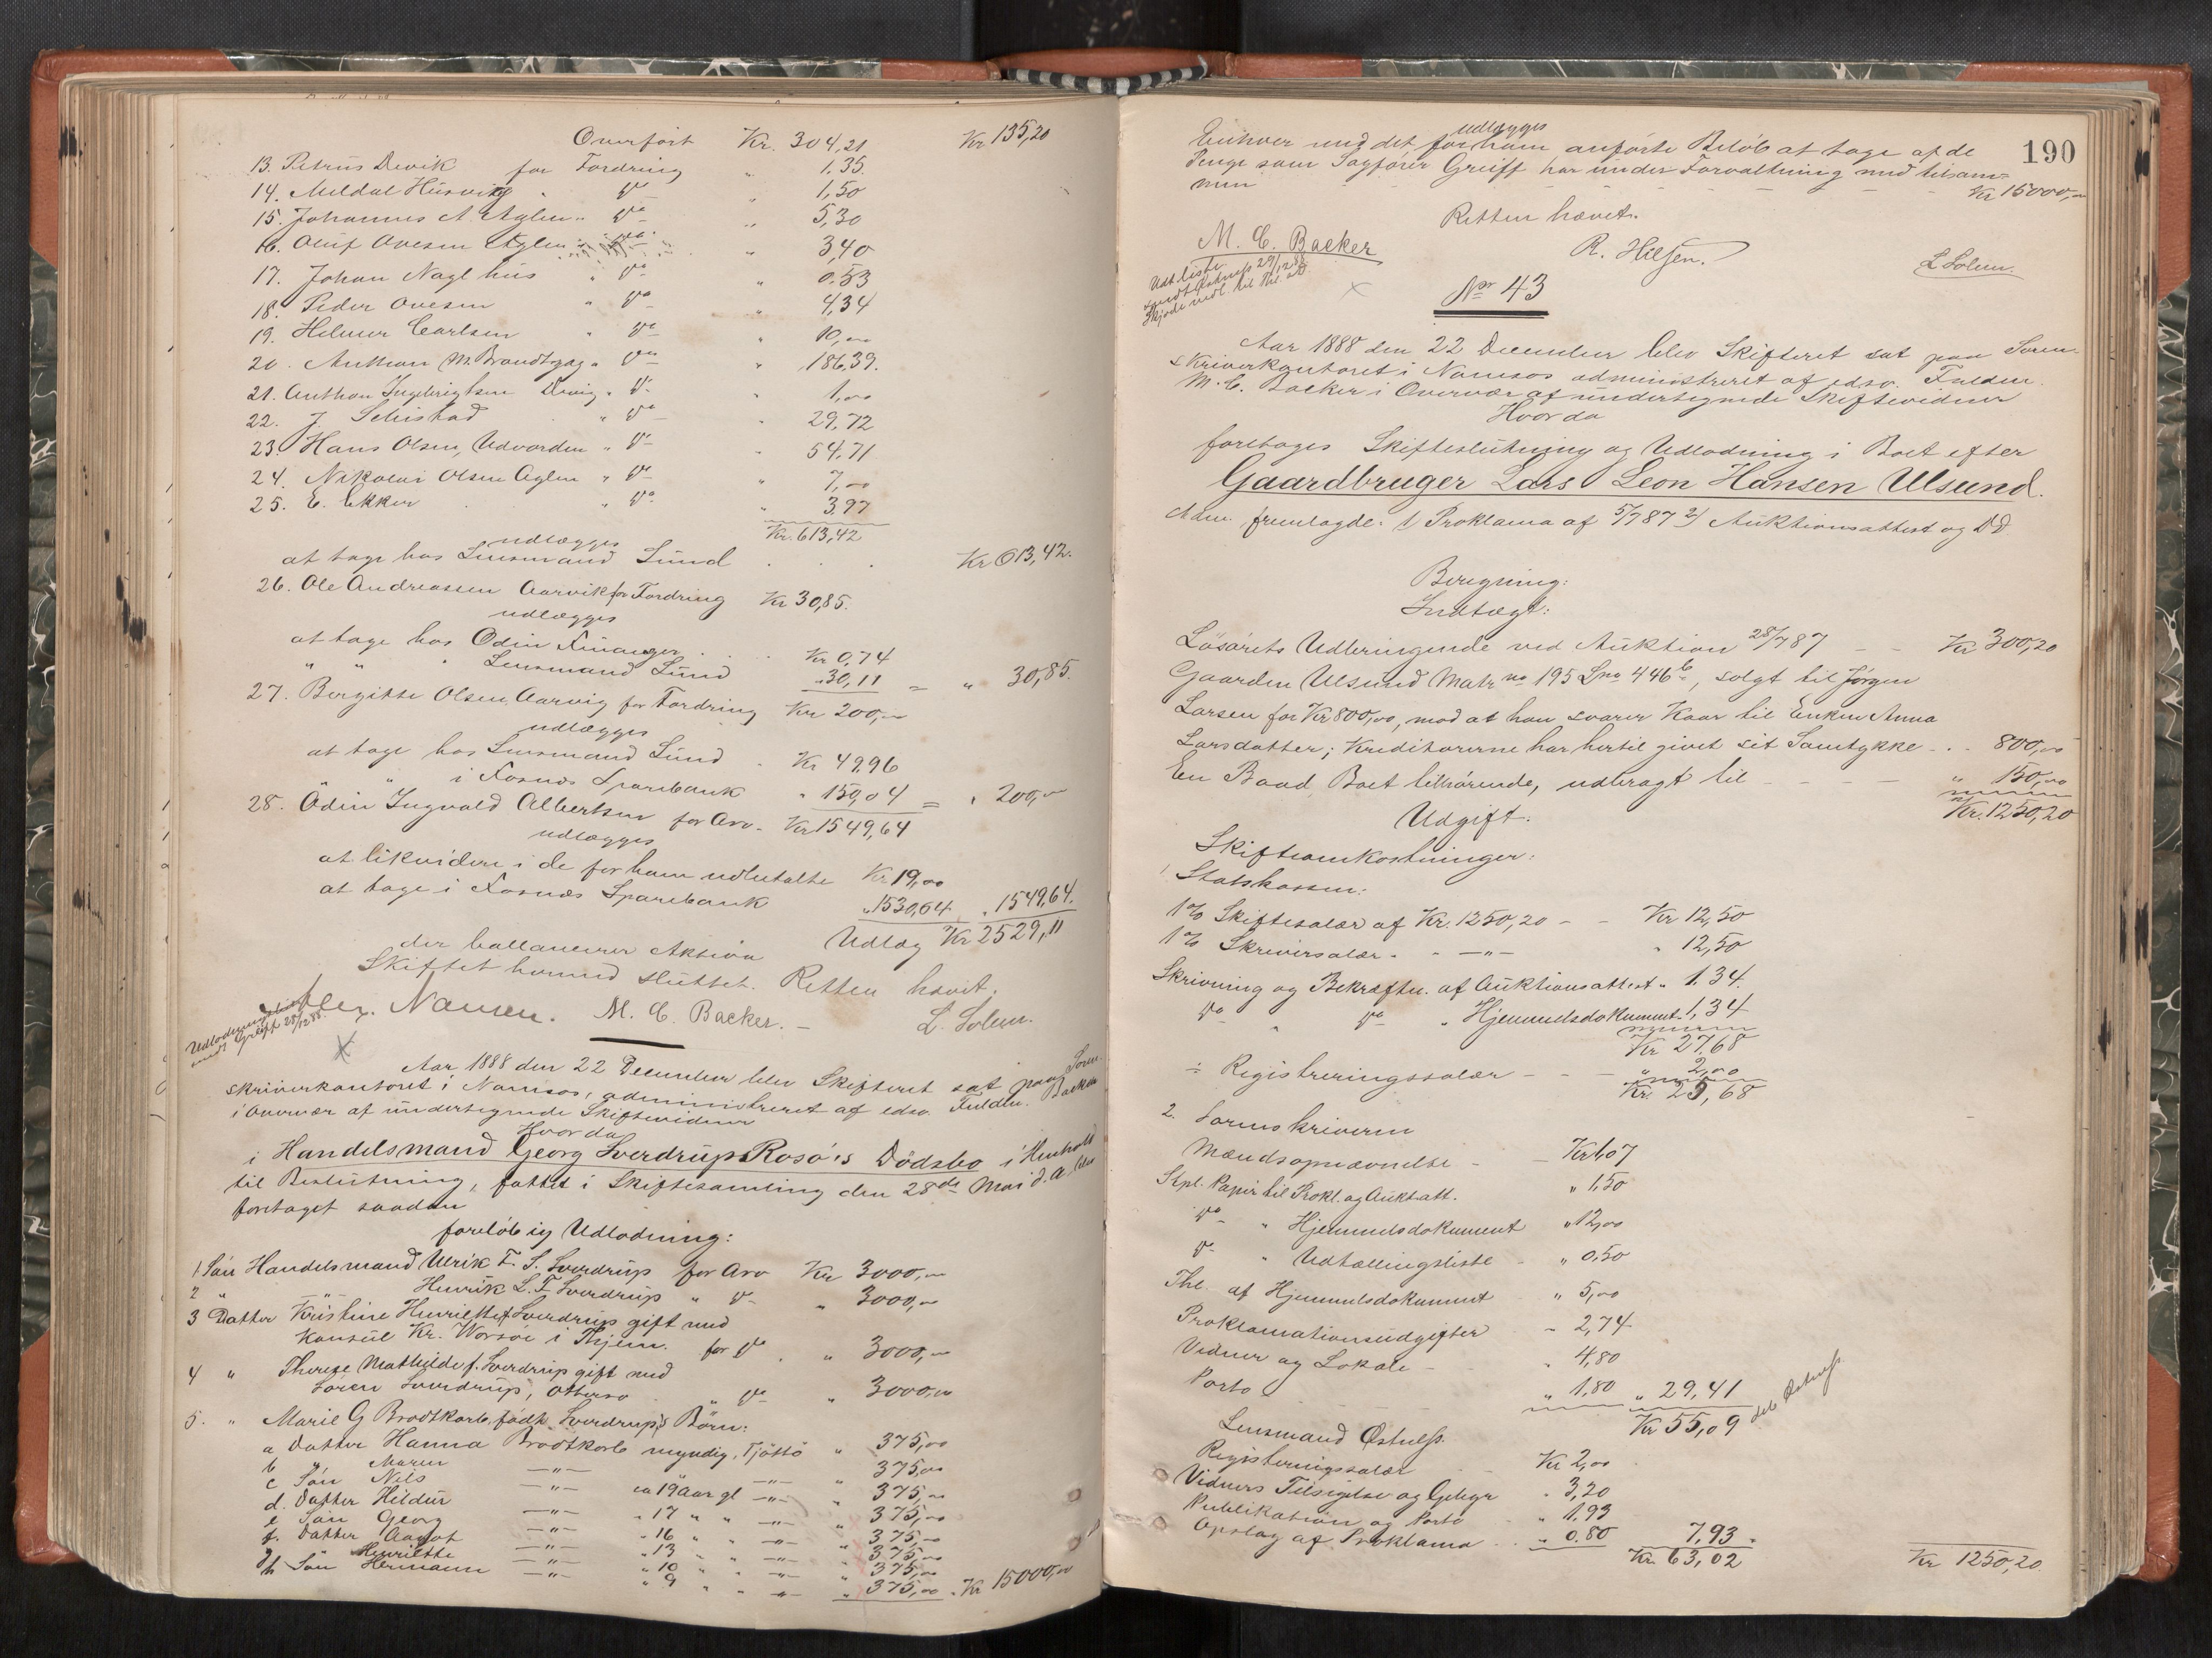 Overført Kr. 304,21 Kr 135,20
13. Petrus Devik for Fordring " 1,35.
14. Meldal Husvik " Do " 1,50
15. Johannes A. Aglen " Do " 5,30
16. Oluf Ovesen Aglen " " 3,40
17. Johan Naglhus " Do " 0.53
18. Peder Ovesen " Do " 4,34
19. Helmer Carlsen " Do " 10,00
20. Anthon M. Brandtzæg " Do " 186,39.
21. Anthon Ingebrigtsen Devig " Do " 1,00
22. J. Selistad " Do " 29,72
23. Hans Olsen, Udvorden " Do " 54,71
24. Nikolai Olsen Aglen " Do " 7,00
25. E. Ekker " Do " 3,97
Kr. 613,42
udlægges
at tage hos Lensmand Lund . . . Kr 613,42.
26. Ole Andreassen Aarvik for Fordring Kr 30,85.
udlægges
at tage hos Odin Finanger . . Kr 0,74
" " " Lensmand Lund " 30,11 = " 30,85.
27. Bergitte Olsen Aarvig for Fordring Kr 200,00
udlægges
at tage hos Lensmand Lund - Kr 49,96
" " i Fosnes Sparebank " 150,04 = " 200,00
28. Odin Ingvald Albertsen for Arv - Kr 1549,64
udlægges
at likvidere i de for ham udbetalte Kr 19,00
at tage i Fosnes Sparebank " 1530,64 " 1549,64.
Udlæg Kr 2529,11
der ballancerer Aktiva
Skiftet hermed sluttet. Retten hævet.
Nansen. M. C. Backer. L. Solem.
Udlodningsliste
sendt Greiff 28/12 88.
Aar 1888 den 22 December blev Skifteret sat paa Soren-
skriverkontoret i Namsos, administreret af edsv. Fuldm. Backer
i Overvær af undertegnede Skiftevidner
Hvorda
i Handelsmand Georg Sverdrup Rosø's Dødsbo i Henhold
til Beslutning, fattet i Skiftesamling den 28de Mai d. A. blev
foretaget saadan
foreløbig Udlodning:
1 Søn Handelsmand Ulrik F. S. Sverdrup for Arv Kr 3000,00
2 " " Henrik L. F. Sverdrup " Do " 3000,00
3 Datter Kristine Henriette f. Sverdrup gift med
Konsul Kr. Worsøe i Thjem. for Do . " 3000,00
4 " Therese Mathilde f. Sverdrup gift med
Søren Sverdrup, Otterøo " Do " 3000,00
5. " Marie G Brodtkorb, født Sverdrup's Børn:
a Datter Hanna Brodtkorb myndig, Tjøttø " 375,00
b " Maren —"— —"— " 375,00
c Søn Nils —"— ca 19 Aar gl —"— " 375,00
d. Datter Hildur —"— " 17 " " —"— " 375,00
e Søn Georg —"— " 16 " " —"— " 375,00
f. Datter Aagot —"— " 13 " " —"— " 375,00
g " Henriette —"— " 10 " " —"— " 375,00
h Søn Hermann —"— " 9 " " —"— " 375,00 - Kr 15000,00
190
Enhver med det for ham udlægges anførte Beløb at tage af de
Penge som Sagfører Greiff har under Forvaltning med tilsam-
men - - - - - - - Kr 15000,00
Retten hævet.
M. C. Backer R. Hilsen. L Solem.
Udt.liste
sendt 29/12 88
Skjøde medl. til Thl.
No 43
Aar 1888 den 22 December blev Skifteret sat paa Soren-
skriverkontoret i Namsos administreret af edsv. Fuldm.
M. C. Backer i Overvær af undertegnede Skiftevidner
Hvorda
foretages Skifteslutning og Udlodning i Boet efter
Gaardbruger Lars Leon Hansen Ulsund.
Adm. fremlagde: 1) Proklama af 5/7 87 2) Auktionsattest og DD.
Beregning:
Indtægt:
Løsørets Udbringende ved Auktion 28/7 87 - - Kr 300,20
Gaarden Ulsund Matr no 195 Lno 446b, solgt til Jørgen
Larsen for Kr 800,00, mod at han svarer Kaar til Enken Anna
Larsdatter; Kreditorerne har hertil givet sit Samtykke - . - 800,00
En Baad, Boet tilhørende, udbragt til - - - - " 150,00
Kr. 1250,20
Udgift:
Skifteomkostninger:
1 Statskassen:
1% Skiftesalær af Kr. 1250,20 - - Kr 12,50
1% Skriversalær - " —"— " 12,50
Skrivning og Bekræftn. af Auktionsattest " 1,34.
Do " Do " Hjemmelsdokument " 1,34
Kr 27,68
÷ Registreringssalær - - - " 2,00
Kr. 25,68
2. Sorenskriveren
Mændsopnævnelse - - Kr 1,07
Stpl. Papir til Prokl. og Aukt.att. " 1,50
Do " Hjemmelsdokument " 12,00
Do " Udtællingsliste " 0,50
Thl. af Hjemmelsdokument " 5,00
Proklamationsudgifter - 2,74
Vidner og Lokale - " 4,80
Porto " 1,80 " 29,41
Kr 55,09
Lensmand
Registreringssalær Kr 2,00
Vidners Tilsigelse og Gebyr " 3,20
Publikation og Porto " 1,93
Opslag af Proklama " 0.80 7,93
Kr. 63,02 Kr 1250,20.